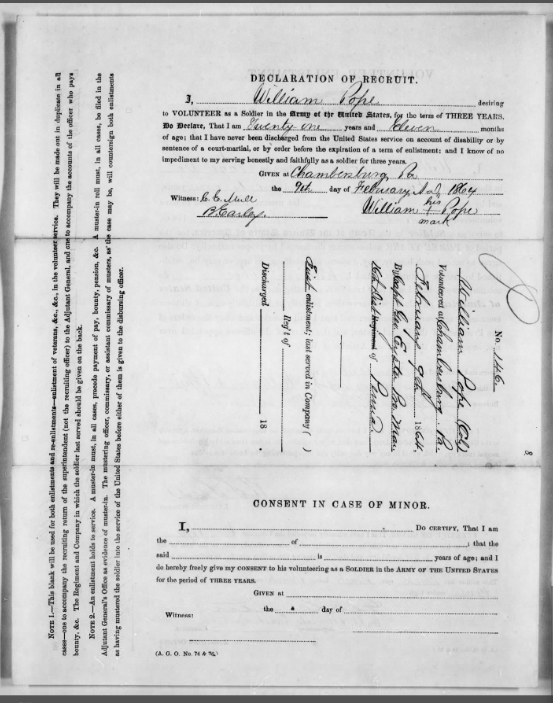 DECLARATION OF RECRUIT.
I, William Pope desiring
to VOLUNTEER as a Soldier in the Army of the United States, for the term of THREE YEARS,
Do Declare, That I am Twenty one years and Eleven months
of age; that I have never been discharged from the United States service on account of disability or by
sentence of a court-martial, or by order before the expiration of a term of enlistment; and I know of no
impediment to my serving honestly and faithfully as a soldier for three years.
GIVEN at Chambersburg, Pa
the 9th day of February A.D. 1864
Witness:
William his + mark Pope
No. 146.
William Pope (Col)
Volunteered at Chambersburg Pa
February 9th 1864,
By Capt Geo
16th Dist Regiment of Penna
First enlistment; last served in Company ( )
Reg't of
Discharged 18 .
8
CONSENT IN CASE OF MINOR.
I, DO CERTIFY, That I am
the of ; that the
said is years of age; and I
do hereby freely give my CONSENT to his volunteering as a SOLDIER in the ARMY OF THE UNITED STATES
for the period of THREE YEARS.
GIVEN at
the day of
Witness:
(A. G. O. No. 74 & 76.)
NOTE 1.—This blank will be used for both enlistments and re-enlistments—enlistment of veterans, &c., &c., in the volunteer service. They will be made out in duplicate in all
cases—one to accompany the recruiting return of the superintendent (not the recruiting officer) to the Adjutant General, and one to accompany the accounts of the officer who pays
bounty, &c. The Regiment and Company in which the soldier last served should be given on the back.
NOTE 2.—An enlistment holds to service. A muster-in must, in all cases, precede payment of pay, bounty, pension, &c. A muster-in roll must, in all cases, be filed in the
Adjutant General's Office as evidence of muster-in. The mustering officer, commissary, or assistant commissary of musters, as the case may be, will countersign both enlistments
as having mustered the soldier into the service of the United States before either of them is given to the disbursing officer.